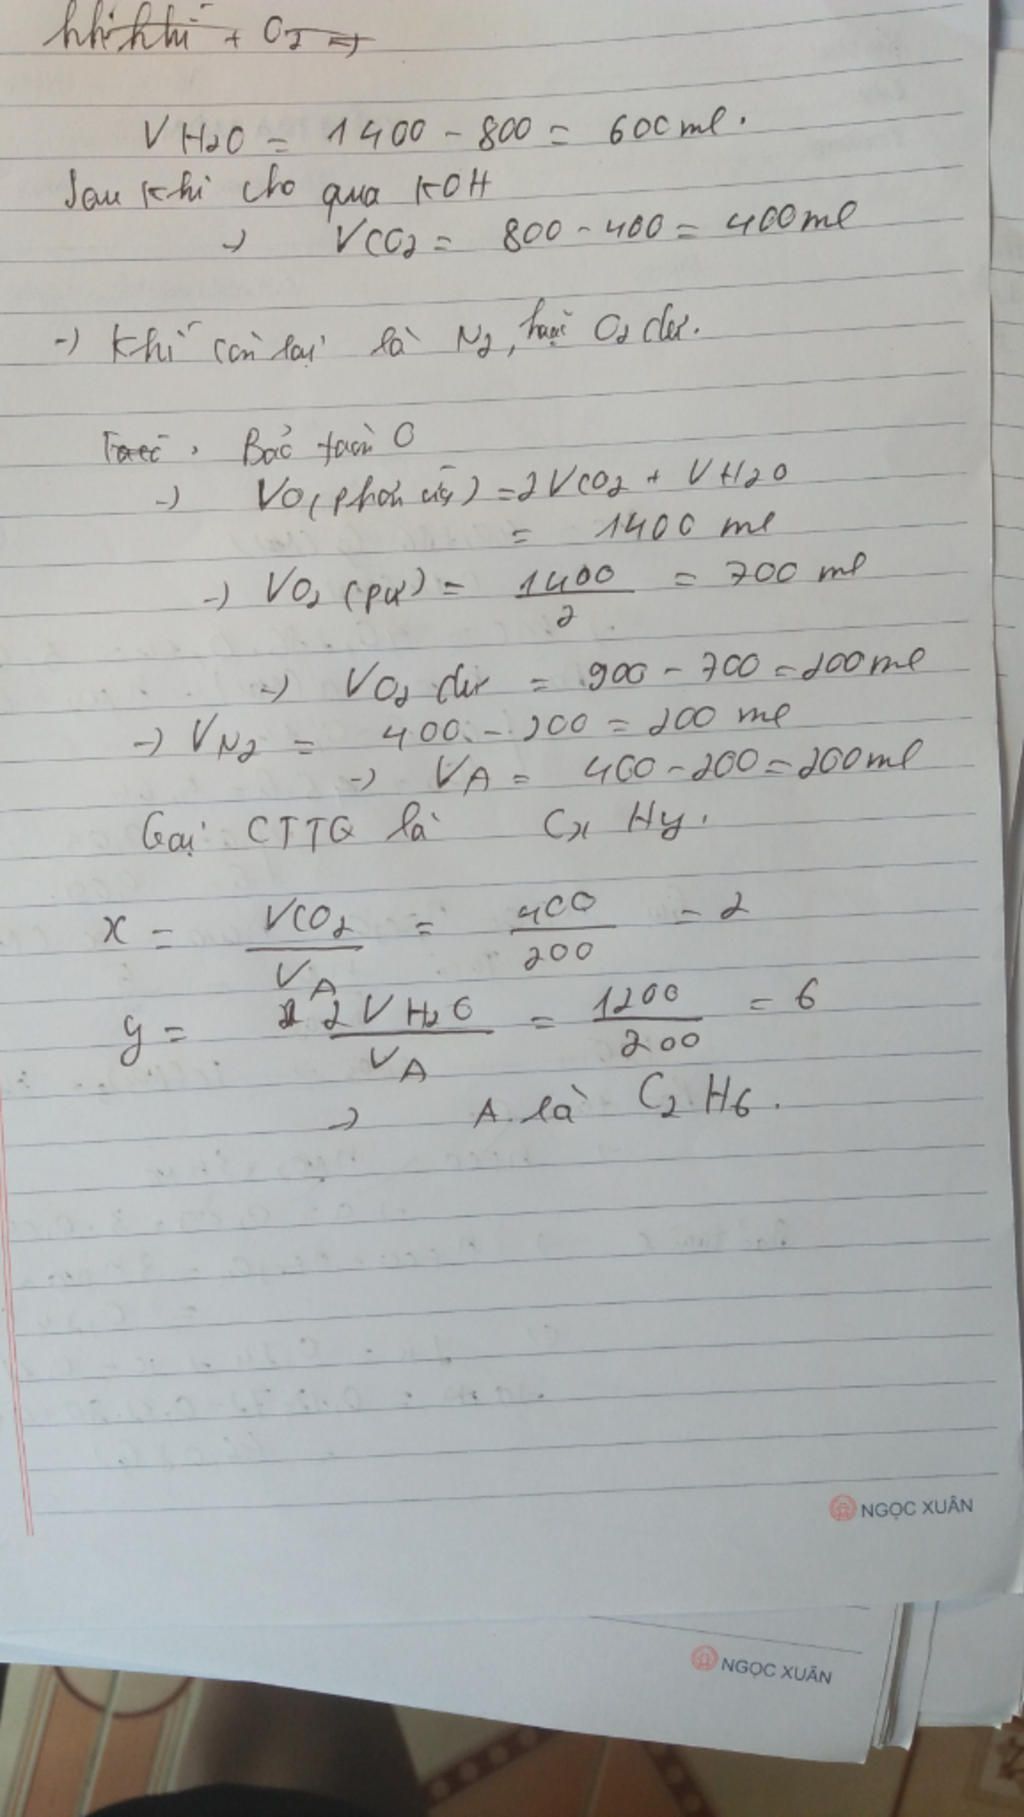 khí + O2 →
VH2O = 1400 - 800 = 600 ml.
Sau khi cho qua KOH
→ VCO2 = 800 - 400 = 400 ml
→ Khí còn lại là N2, O2 dư.
Bảo toàn O
→ VO (phản ứng) = 2VCO2 + VH2O
= 1400 ml
→ VO2 (pư) = 1400/2 = 700 ml
→ VO2 dư = 900 - 700 = 200 ml
→ VN2 = 400 - 200 = 200 ml
→ VA = 400 - 200 = 200 ml
Gọi CTTQ là Cx Hy.
x = VCO2/VA = 400/200 = 2
y = 2VH2O/VA = 1200/200 = 6
→ A là C2H6.
NGỌC XUÂN
NGỌC XUÂN